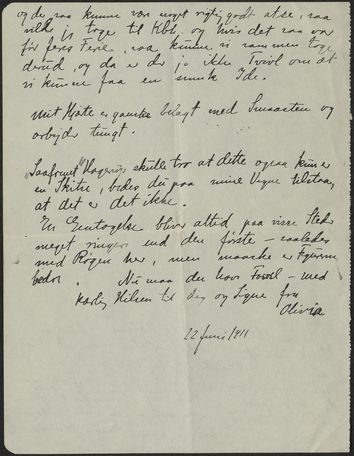 og der saa kunne være noget rigtig godt at se, saa
vilde jeg tage til Kbh, og hvis det saa var
før feres Ferie, saa kunne vi sammen tage
derud, og da er der jo ikke Tvivl om at
vi kunne faa en smuk Ide.
Mit Hjerte er ganske belagt med Smaasten og
arbejder tungt.
Saafremt skulde tro at dette ogsaa kun er
en Skitse, bedes du paa mine Vegne tilstaa,
at det er det ikke.
En Gentagelse bliver altid paa visse Steder
meget ringere end den første – saaledes
med Røgen her, men maaske er Figurerne
bedre. Nu maa du have Farvel – med
kærlig Hilsen til dig og Signe fra
Olivia
22 Juni 1911